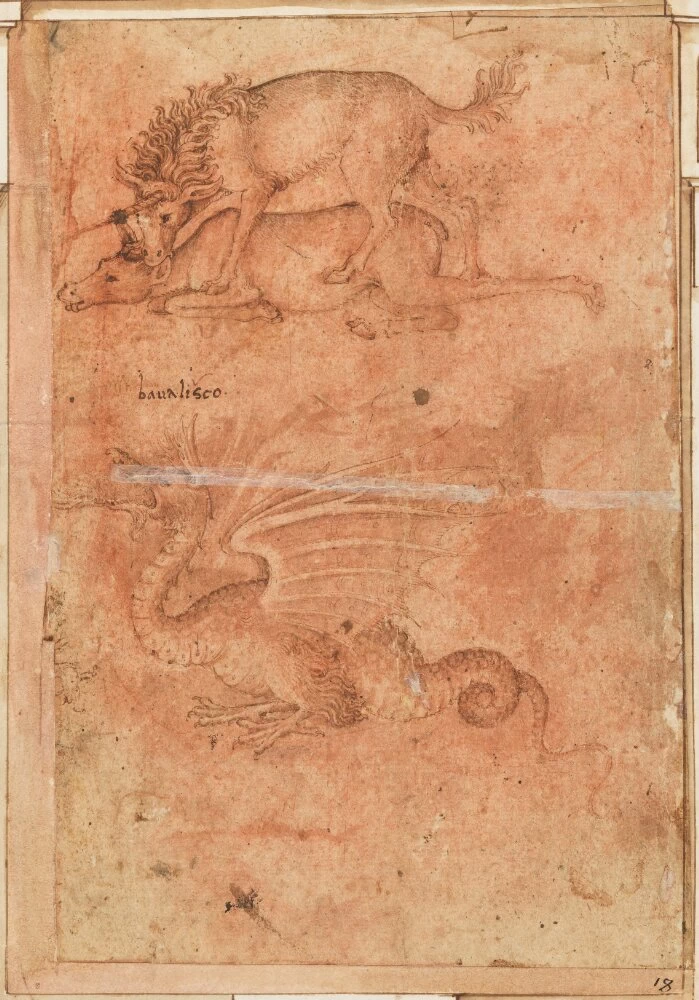 bavalisco.
18